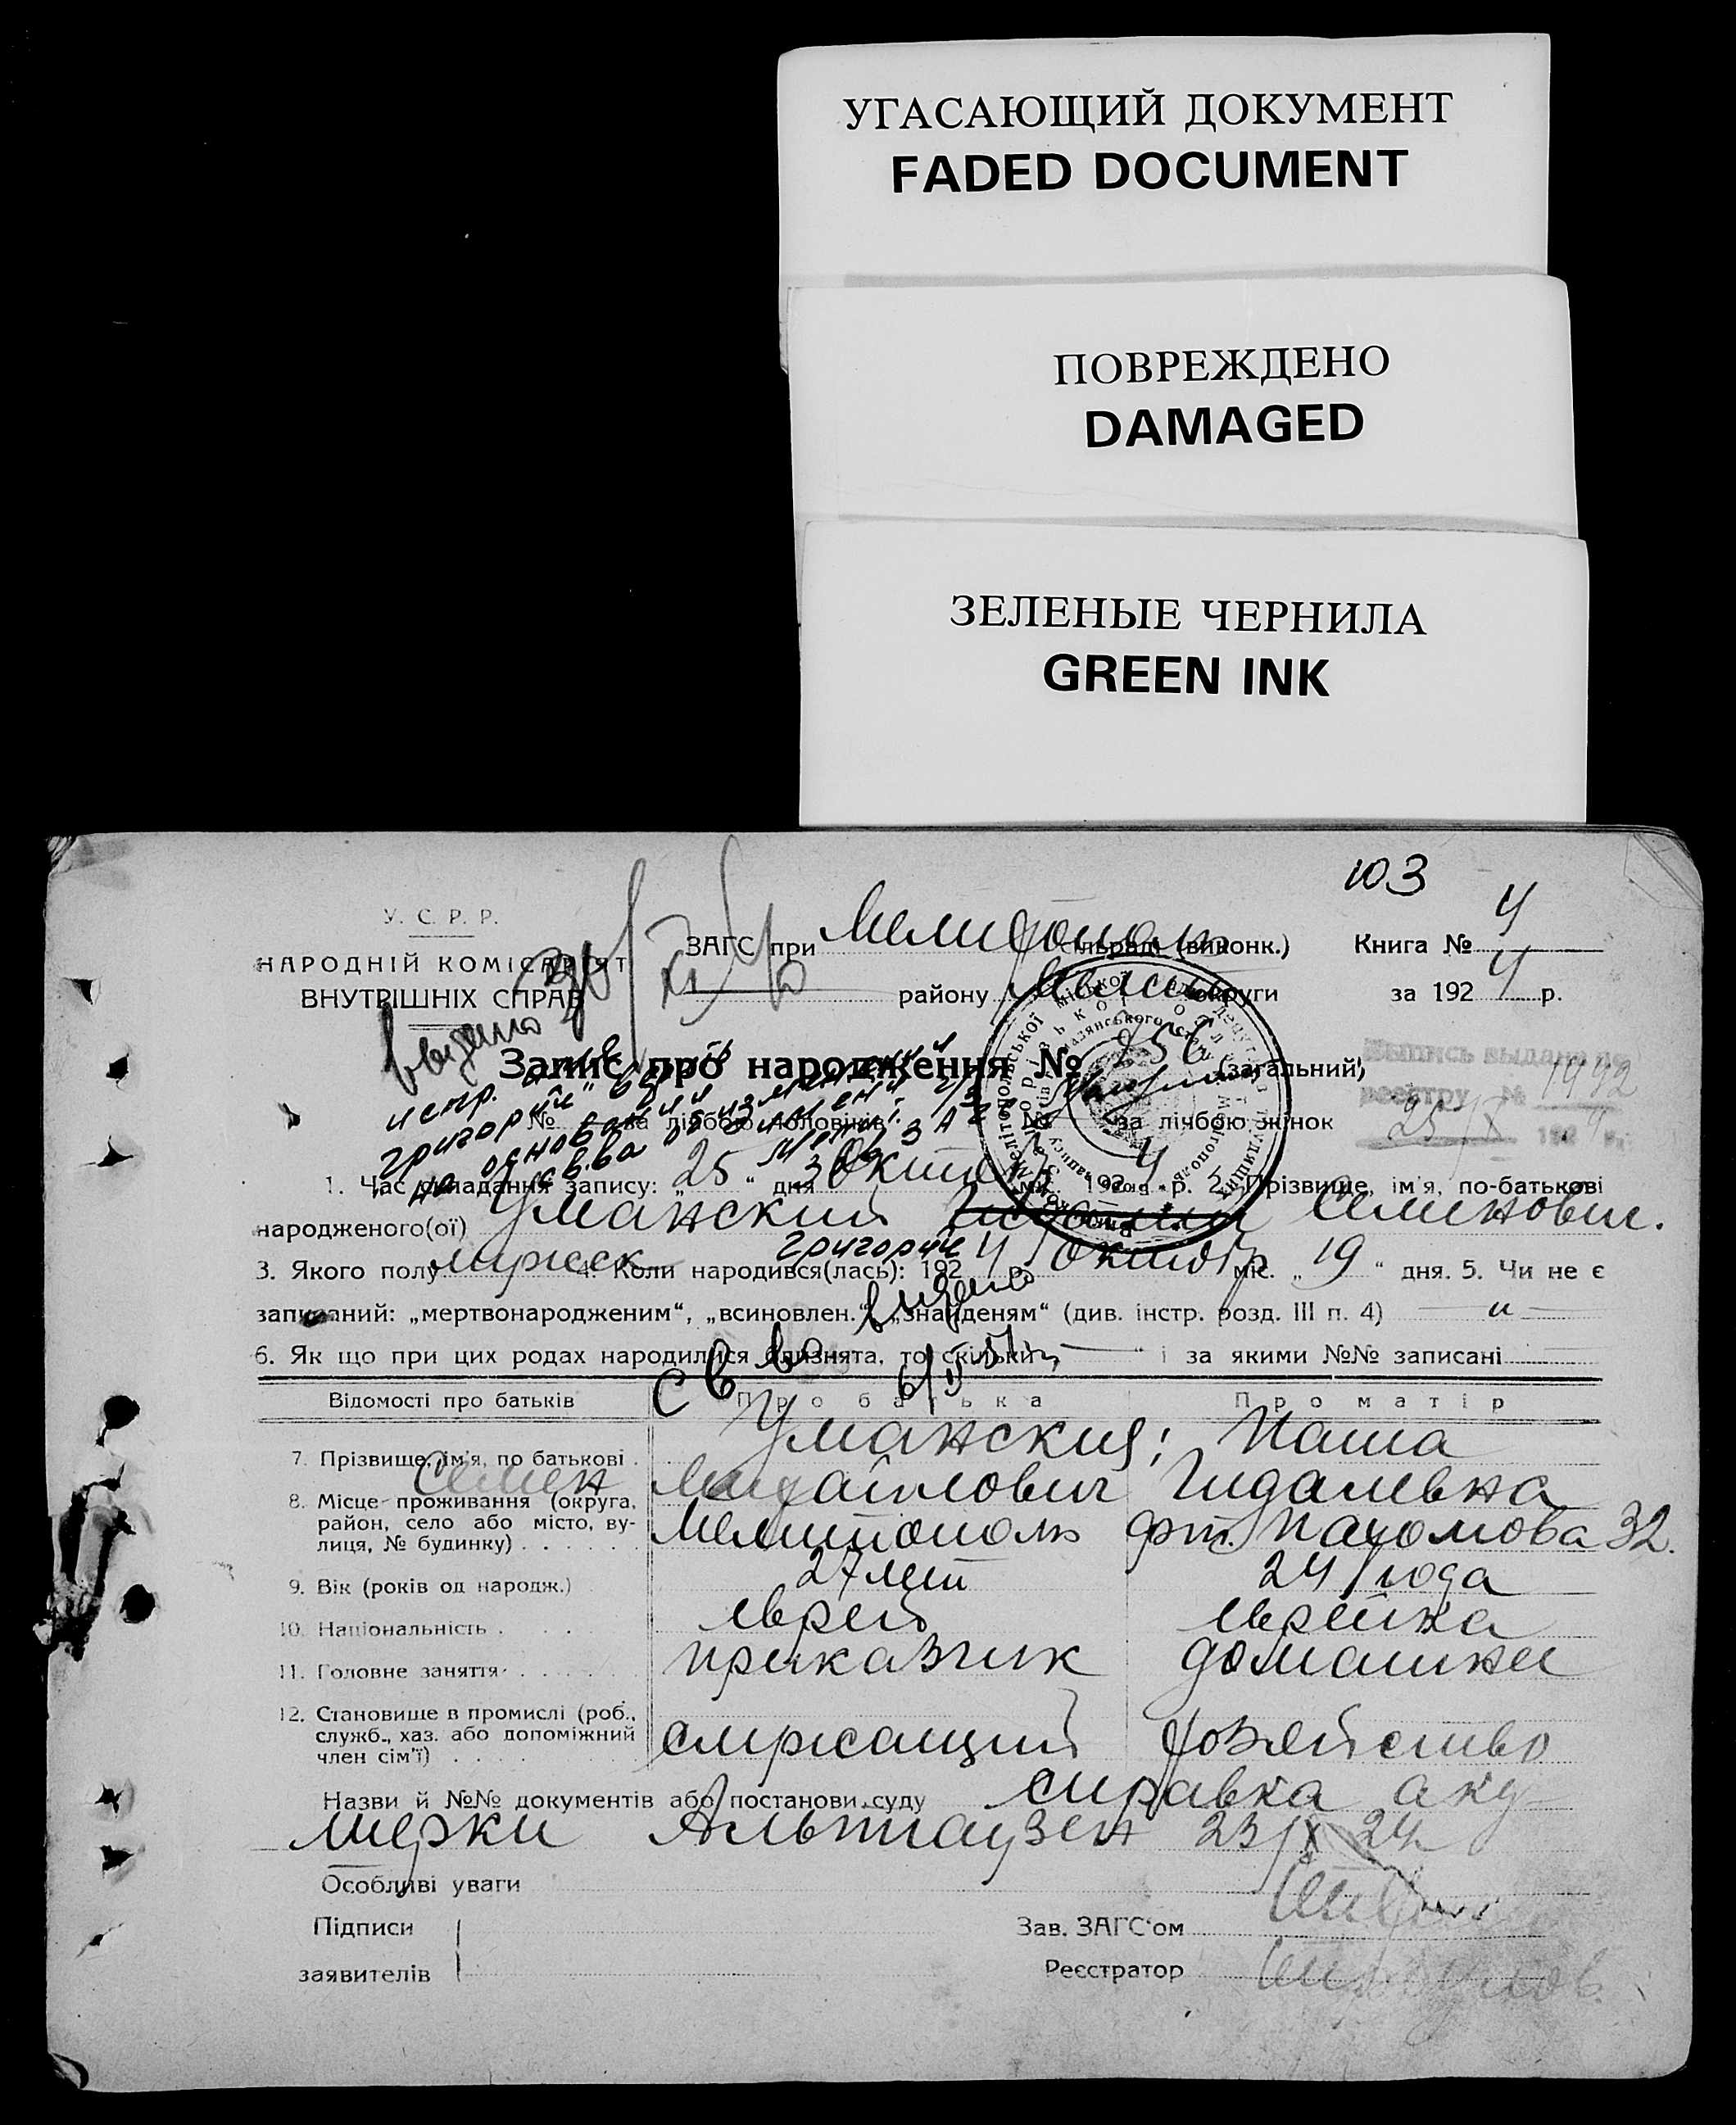 УГАСАЮЩИЙ ДОКУМЕНТ
FADED DOCUMENT
ПОВРЕЖДЕНО
DAMAGED
ЗЕЛЕНЫЕ ЧЕРНИЛА
GREEN INK
103
У. С. Р. Р.
НАРОДНІЙ КОМІСАРІЯТ
ВНУТРІШНІХ СПРАВ
ЗАГС при Мелитополь сільраді (виконк.) Книга № 4
району округи за 1924 р.
видано
Запис про народження № 756 (загальний)
Выпись выдана по
реестру № 1992
25/X 192 г.
испр. имя
Григорий
на основании
№ за лічбою чоловіків № за лічбою жінок
1. Час складання запису: „25“ дня Октября міс. 1924 р. 2. Прізвище, ім'я, по-батькові
народженого(ої) Уманский Семенович.
Григорий
3. Якого полу мужск 4. Коли народився(лась): 1924 р. октябр міс. „19“ дня. 5. Чи не є
записаний: „мертвонародженим“, „всиновлен.“, „знайденям“ (див. інстр. розд. III п. 4)
видано
6. Як що при цих родах народилися близнята, то скільки і за якими №№ записані
Св во
Відомості про батьків Про батька Про матір
7. Прізвище, ім'я, по батькові Уманския; Паша
Семен Михайлович Гидалевна
8. Місце проживання (округа, район, село або місто, вулиця, № будинку) Мелитополь Пахомова 32.
9. Вік (років од народж.) 27 лет 24 года
10. Національність еврей еврейка
11. Головне заняття приказчик домашнее
12. Становище в промислі (роб., служб., хаз. або допоміжний член сім'ї) служащий хозяйство
Назви й №№ документів або постанови суду справка аку-
шерки Альтгаузен 23/X 24
Особливі уваги
Підписи
Зав. ЗАГС'ом
заявителів
Реєстратор